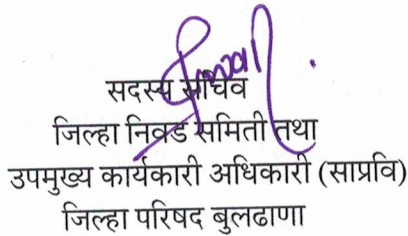 सदस्य सचिव
जिल्हा निवड समिती तथा
उपमुख्य कार्यकारी अधिकारी (साप्रवि)
जिल्हा परिषद बुलढाणा